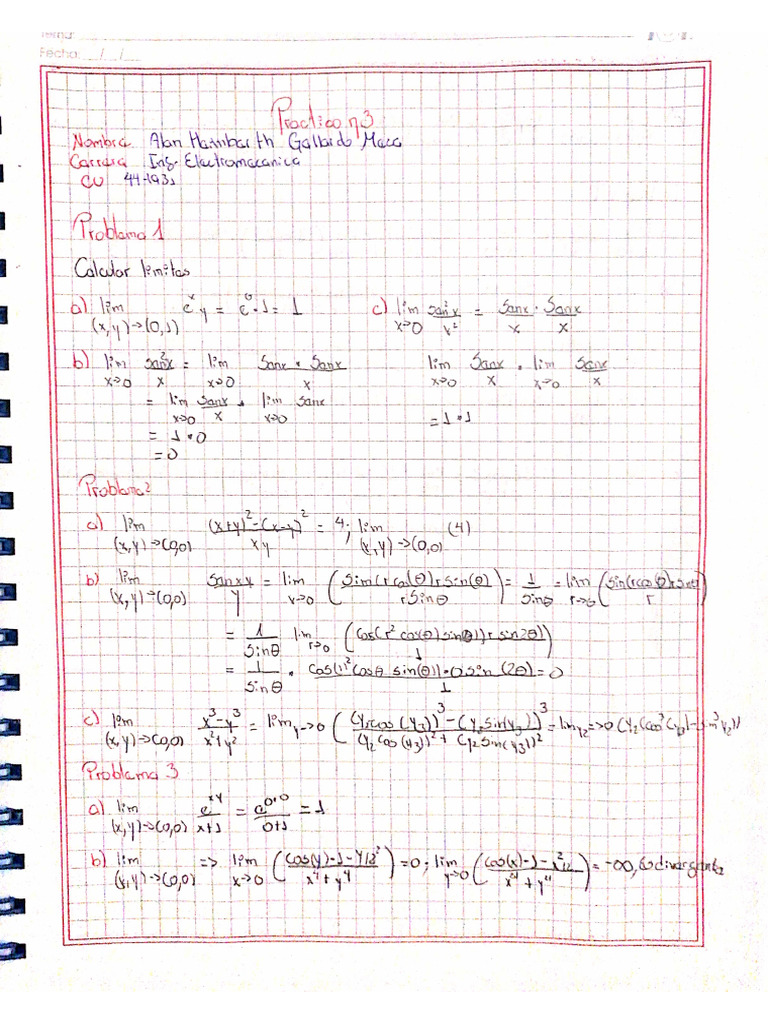 Fecha: __/__/__
Practico n3
Nombre Alan Harmbarth Gallardo Maca
Carrera Ing. Electromecanica
CU 44-1931
Problema 1
Calcular limites
a) lim (x,y)→(0,1) eˣy = e⁰·1 = 1
c) lim x→0 sen²x/x² = Senx/x · Senx/x
lim x→0 Senx/x · lim x→0 Senx/x
= 1·1
b) lim x→0 sen²x/x = lim x→0 Senx · Senx/x
= lim x→0 Senx/x · lim x→0 Senx
= 1·0
= 0
Problema 2
a) lim (x,y)→(0,0) (x+y)²-(x-y)²/xy = 4; lim (x,y)→(0,0) (4)
b) lim (x,y)→(0,0) Senxy/y = lim r→0 (Sin(rcos(θ)rsin(θ)/rSinθ) = 1/Sinθ = lim r→0 (sin(rcos(θ)rsinθ/r)
= 1/Sinθ lim r→0 (Cos(r²cos(θ)sin(θ))rsin2θ)/1)
= 1/sinθ · Cos(r²Cosθ sin(θ))·0sin(2θ)/1 = 0
c) lim (x,y)→(0,0) x³-y³/x²+y²
Problema 3
a) lim (x,y)→(0,0) eˣʸ/x+1 = e⁰·⁰/0+1 = 1
b) lim (x,y)→(0,0) => lim x→0 (Cos(y)-1-y/2²/x⁴+y⁴) = 0; lim y→0 (Cos(x)-1-x²/2/x⁴+y⁴) = -∞, Es divergente